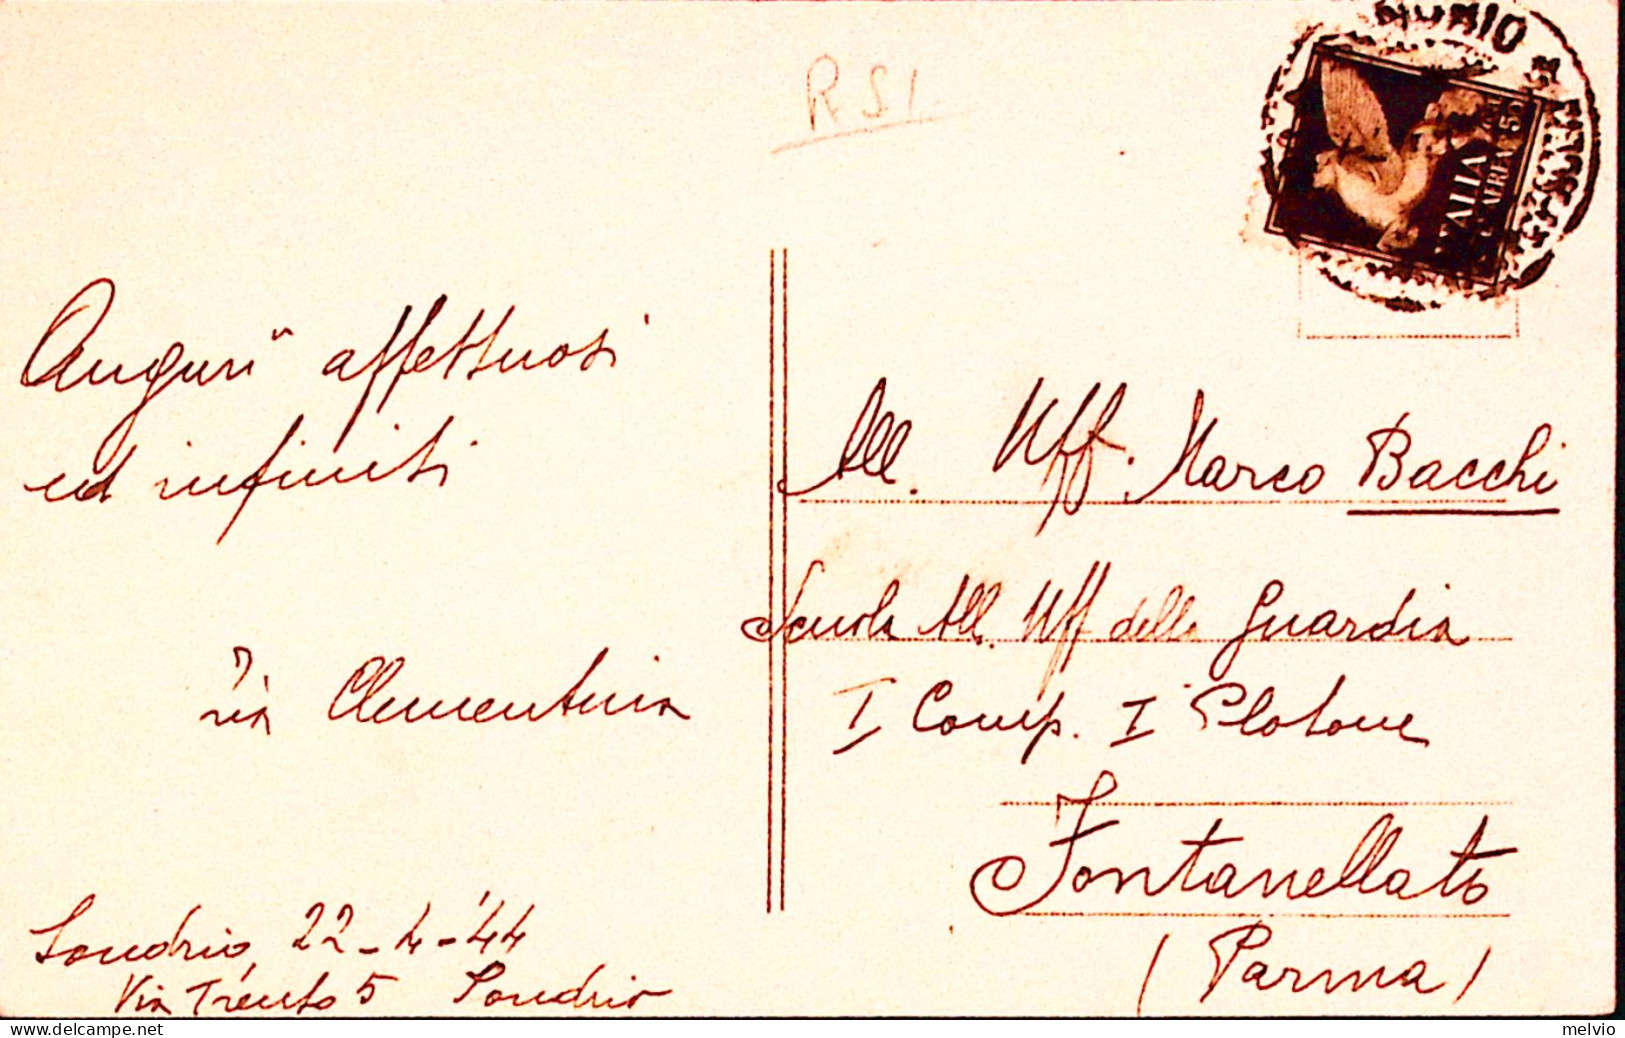 RSI
SONDRIO
ITALIA
P. AEREA 50
Auguri affettuosi
ed infiniti
zia Clementina
Sondrio, 22-4-'44
Via Trento 5 Sondrio
All. Uff. Marco Bacchi
Scuola All. Uff della Guardia
I Comp. I Plotone
Fontanellato
(Parma)
melvio